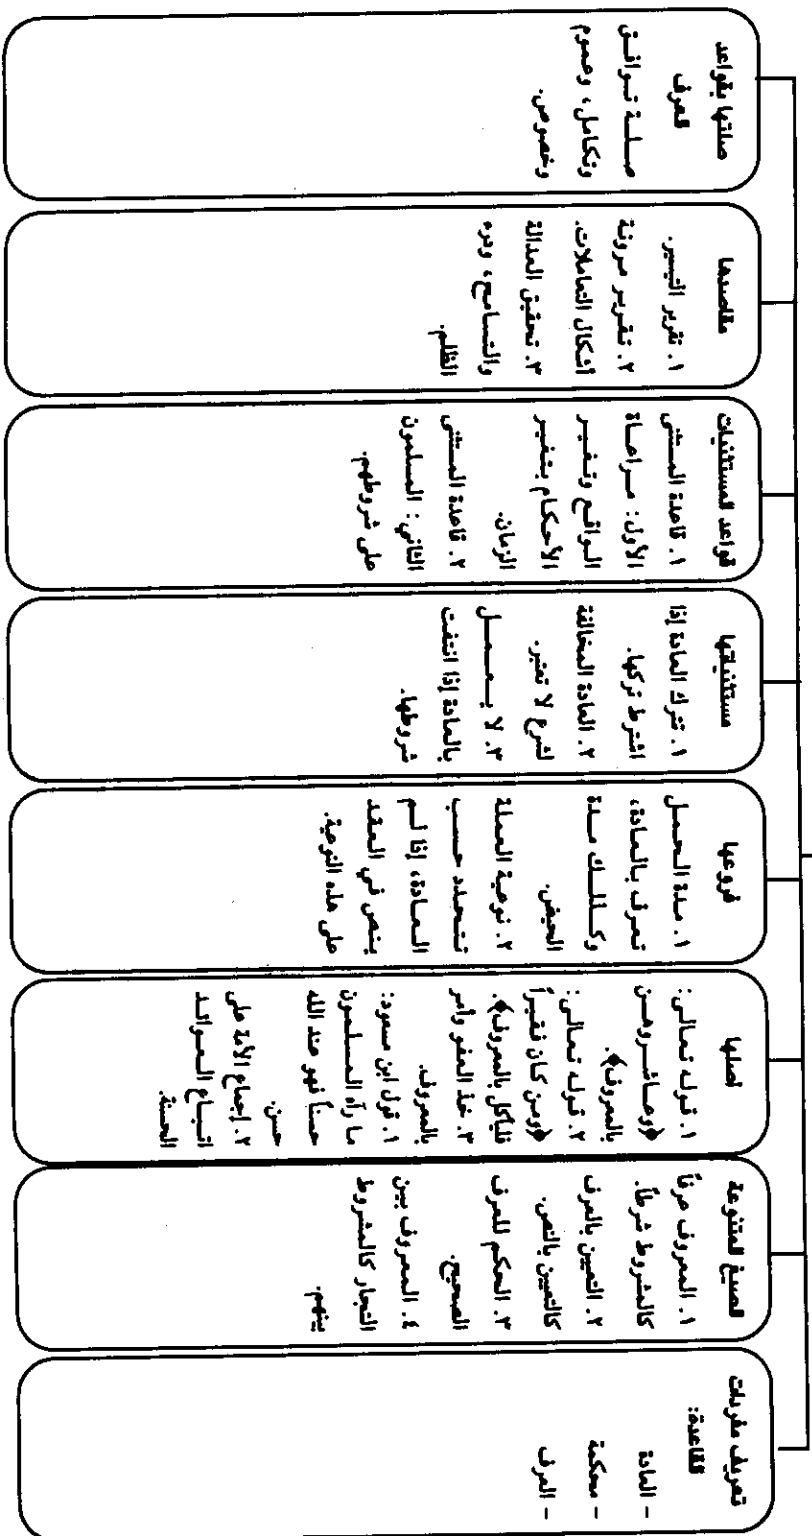 تعريف مفردات
القاعدة:
- العادة
- محكمة
- العرف
الصيغ المتنوعة
١. المعروف عرفاً
كالمشروط شرطاً.
٢. التعيين بالعرف
كالتعيين بالنص.
٣. الحكم للعرف
الصحيح.
٤. المعروف بين
التجار كالمشروط
بينهم.
أصلها
١. قوله تعالى:
﴿وعاشروهن
بالمعروف﴾.
٢. قوله تعالى:
﴿ومن كان فقيراً
فليأكل بالمعروف﴾.
٣. خذ العفو وأمر
بالمعروف.
١. قول ابن مسعود:
ما رآه المسلمون
حسناً فهو عند الله
حسن.
٢. إجماع الأمة على
اتباع العوائد
الحسنة.
فروعها
١. مدة الحمل
تعرف بالعادة،
وكذلك مدة
الحيض.
٢. نوعية العملة
تتحدد حسب
العادة، إذا لم
ينص في العقد
على هذه النوعية.
مستثنياتها
١. تترك العادة إذا
اشترط تركها.
٢. العادة المخالفة
لشرع لا تعتبر.
٣. لا يعمل
بالعادة إذا انتفت
شروطها.
قواعد المستثنيات
١. قاعدة المستثنى
الأول: مراعاة
الواقع وتغير
الأحكام بتغير
الزمان.
٢. قاعدة المستثنى
الثاني: المسلمون
على شروطهم.
مقاصدها
١. تقرير التيسير.
٢. تقرير مرونة
أشكال التعاملات.
٣. تحقيق العدالة
والتسامح، ودرء
الظلم.
صلتها بقواعد
العرف
صلة توافق
وتكامل، وعموم
وخصوص.